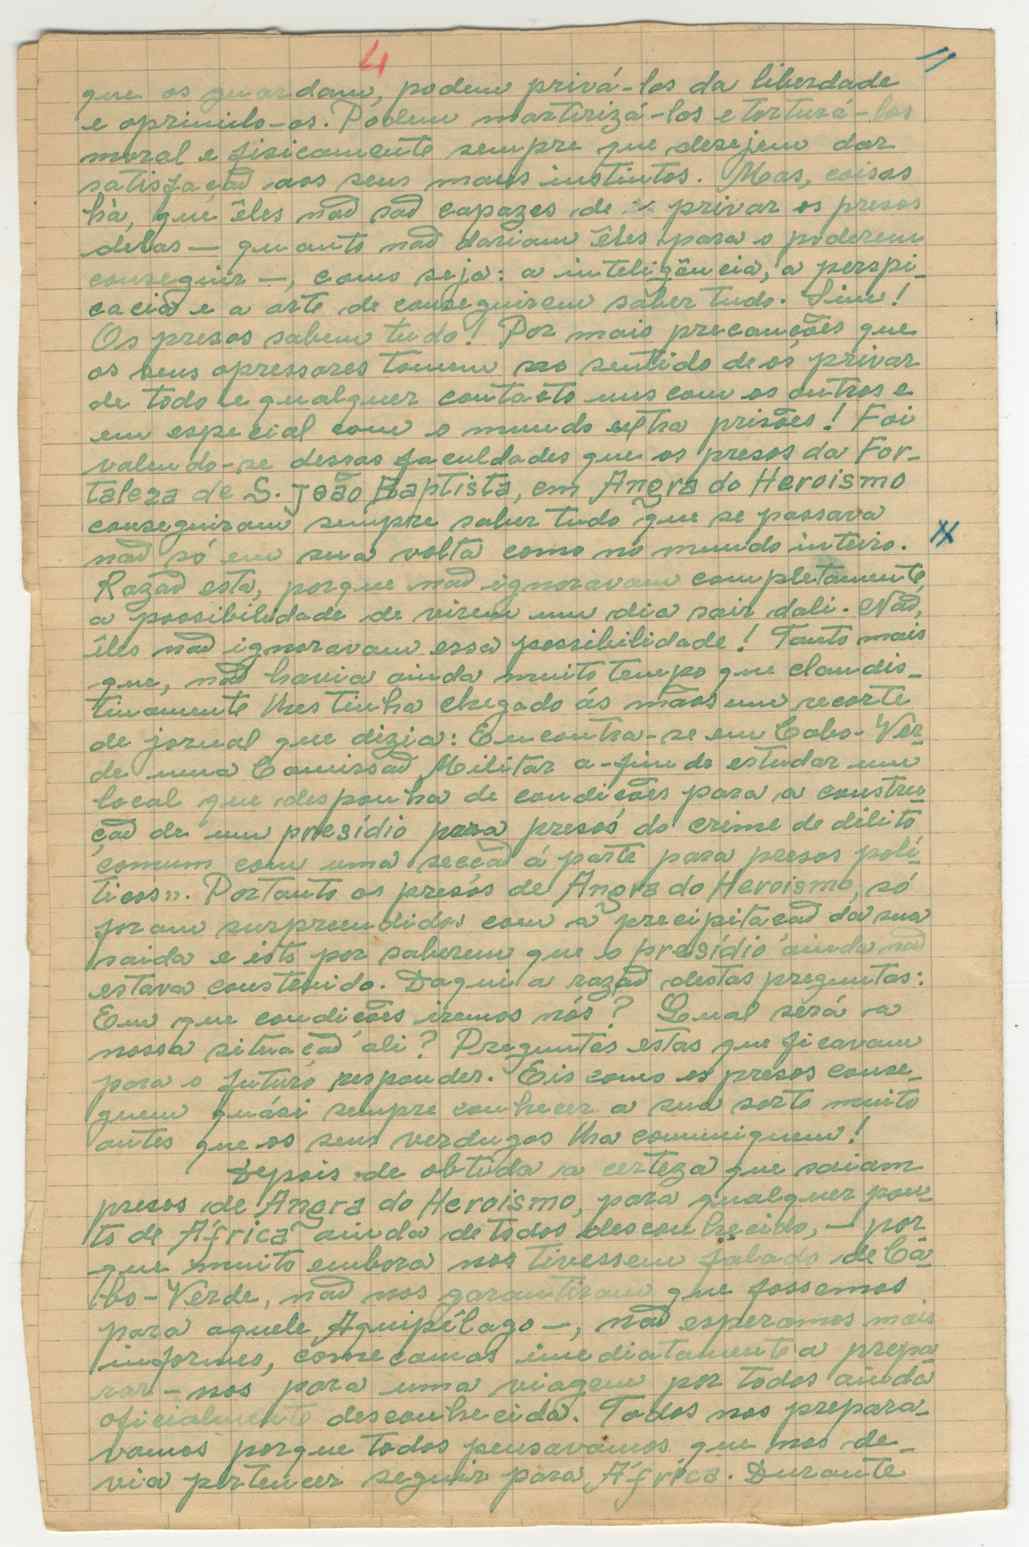 4
11
que os guardam, podem privá-los da liberdade
e oprimilo-os. Podem martirizá-los e torturá-los
moral e fisicamente sempre que desejem dar
satisfação aos seus maus instintos. Mas, coisas
há, que êles não são capazes de privar os presos
delas — quanto não dariam êles para o poderem
conseguir —, como seja: a inteligência, a perspi-
cacia e a arte de conseguirem saber tudo. Sim!
Os presos sabem tudo! Por mais precauções que
os seus opressores tomem no sentido de os privar
de todo e qualquer contacto uns com os outros e
em especial com o mundo extra prisões! Foi
valendo-se dessas faculdades que os presos da For-
taleza de S. João Baptista, em Angra do Heroismo
conseguiram sempre saber tudo que se passava
não só em sua volta como no mundo inteiro.
Razão esta, porque não ignoravam completamente
a possibilidade de virem um dia sair dali. Não,
êles não ignoravam essa possibilidade! Tanto mais
que, não havia ainda muito tempo que clandis-
tinamente lhes tinha chegado ás mãos um recorte
de jornal que dizia: Encontra-se em Cabo-Ver-
de uma Comissão Militar a-fim do estudar um
local que desponha de condições para a constru-
ção de um presídio para presos do crime de dilito
comum com uma secção á parte para presos polí-
ticos». Portanto os presos de Angra do Heroismo, só
foram surpreendidos com a precipitação da sua
saida e isto por saberem que o presídio ainda não
estava construido. Daqui a razão destas preguntas:
Em que condições iremos nós? Qual será a
nossa situação ali? Preguntas estas que ficavam
para o futuro responder. Eis como os presos conse-
guem quási sempre conhecer a sua sorte muito
antes que os seus verdugos lha comuniquem!
Depois de obtida a certeza que saiam
presos de Angra do Heroismo, para qualquer pon-
to de África ainda de todos desconhecido, — por
que muito embora nos tivessem falado de Cá-
bo-Verde, não nos garantiram que fossemos
para aquele Aquipélago —, não esperamos mais
informes, começamos imediatamente a prepa
rar-nos para uma viagem por todos ainda
oficialmente desconhecida. Todos nos prepara-
vamos porque todos pensavamos que nos de-
via pertencer seguir para África. Durante